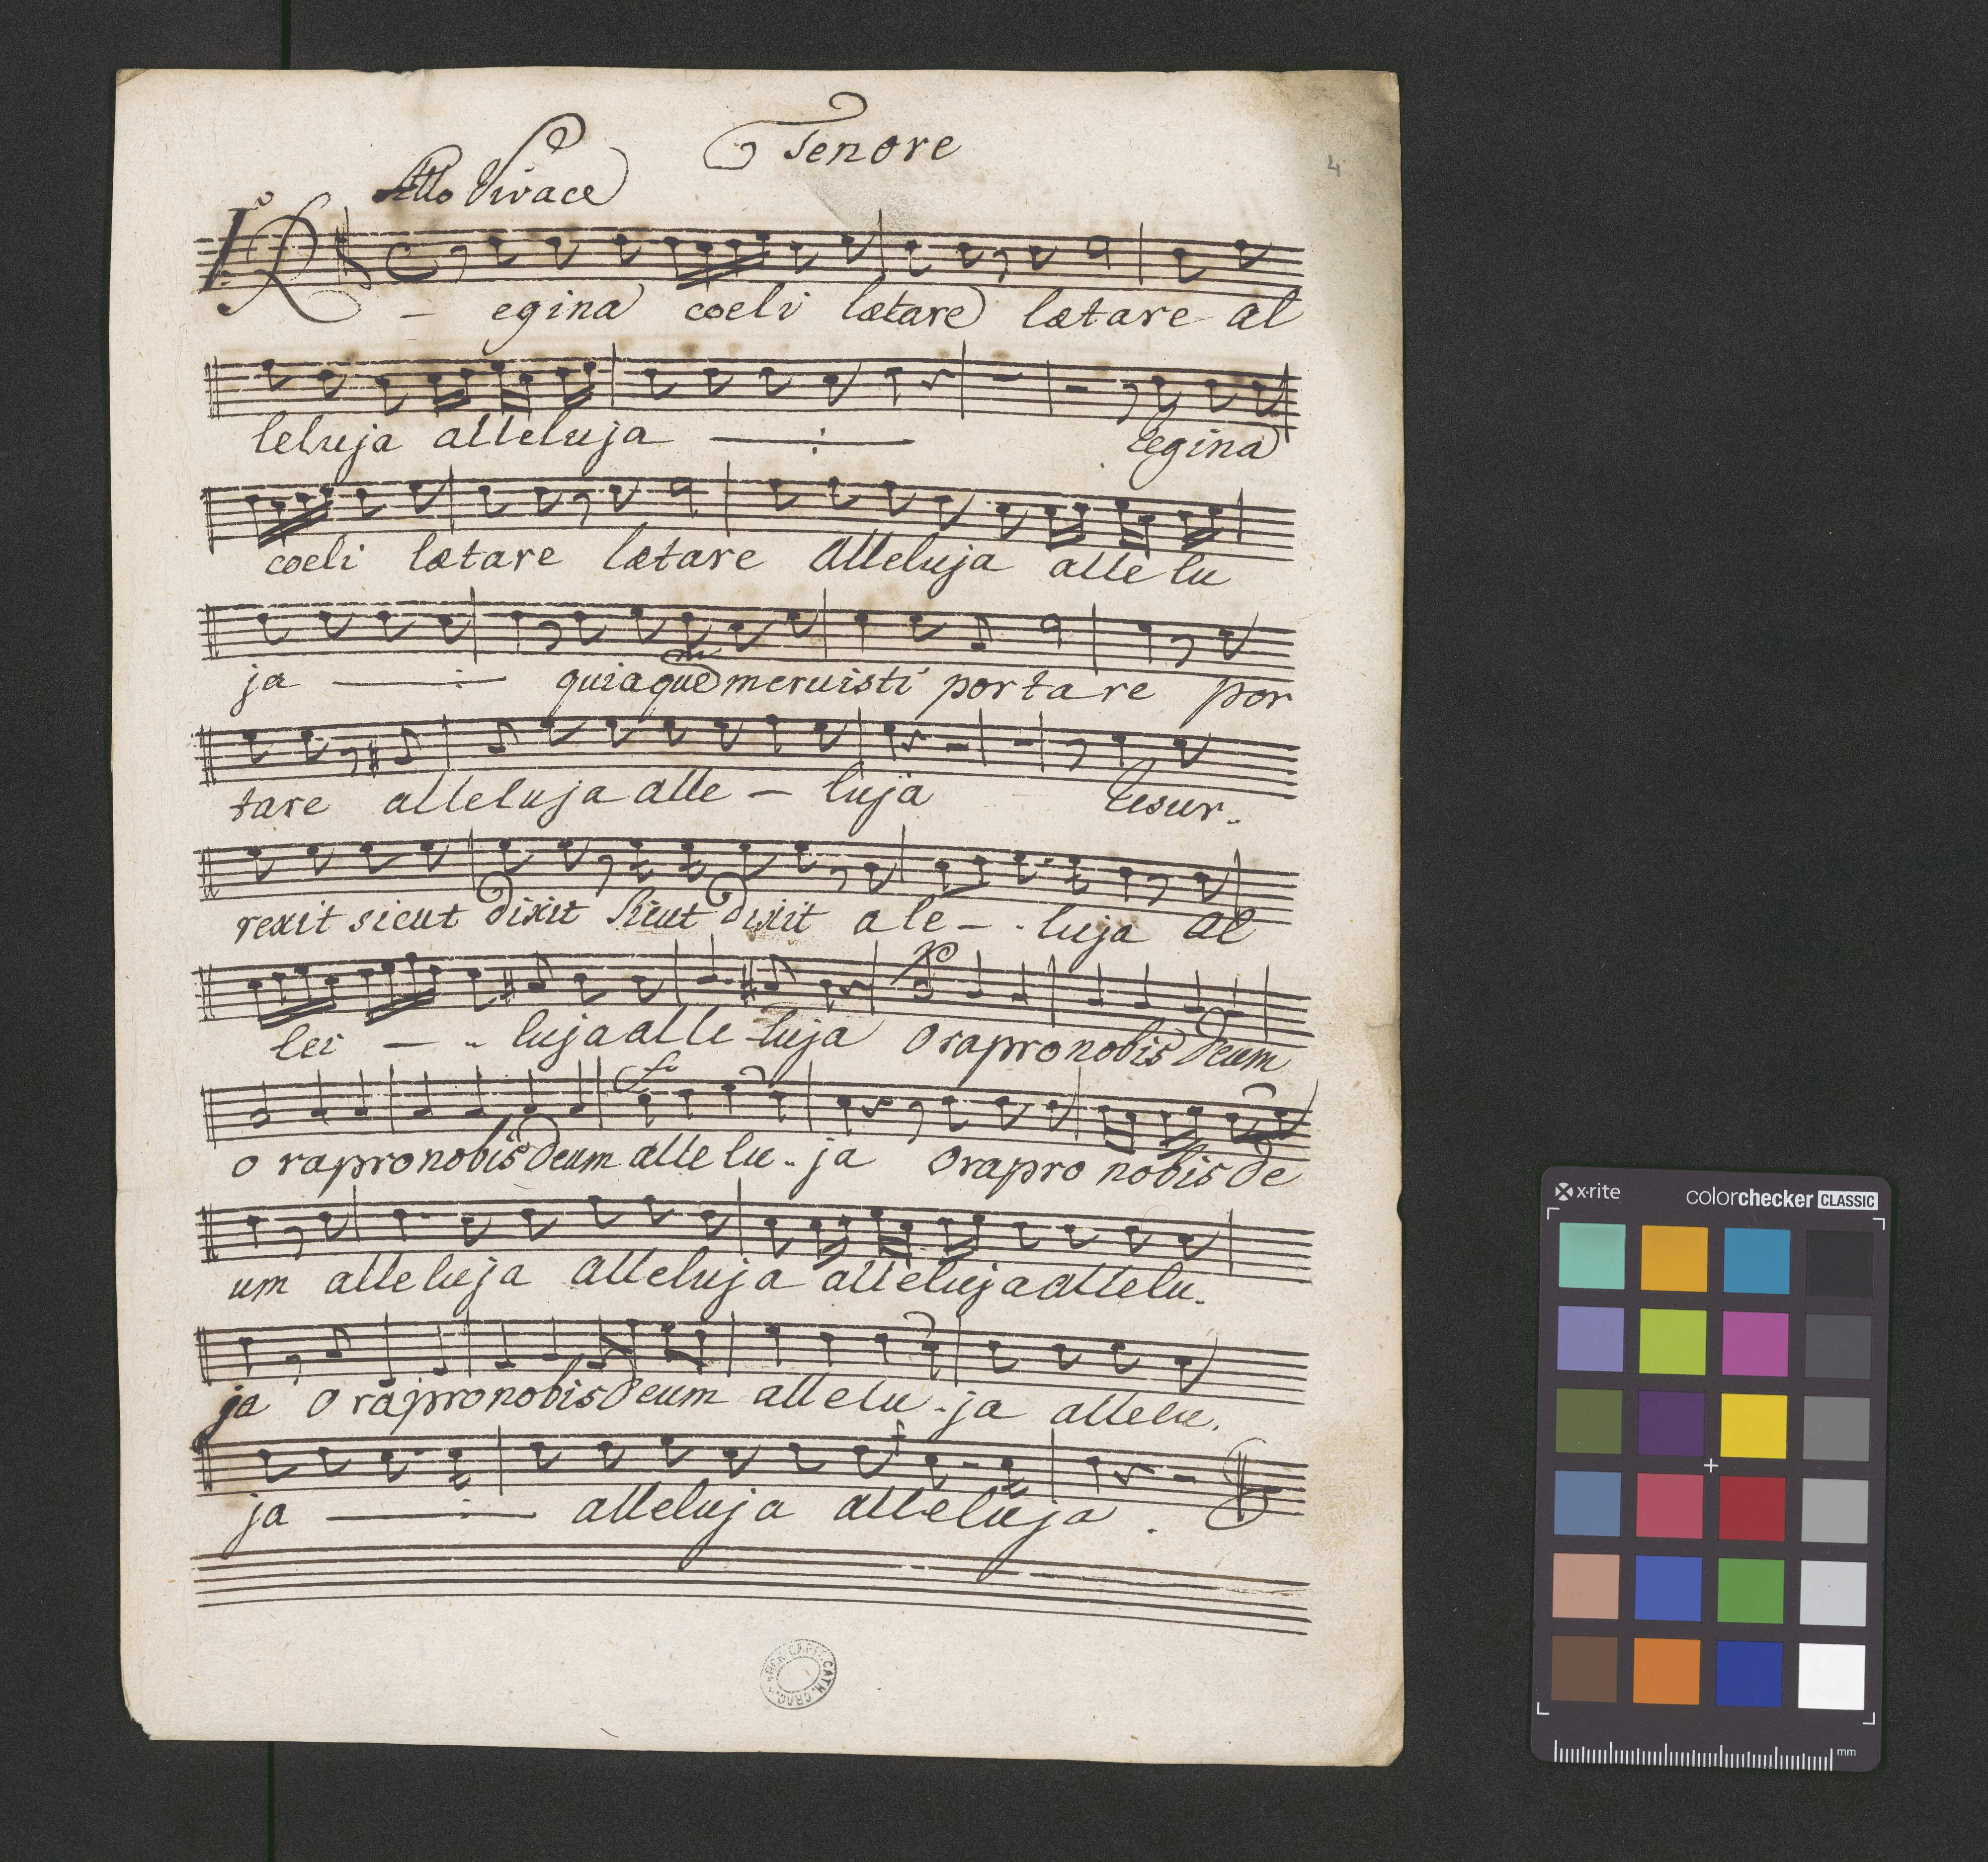 Tenore
4
Allo Vivace
Io
R - egina coeli lætare lætare al
leluja alleluja —:— Regina
coeli lætare lætare alleluja allelu
ja —:— quia quem meruisti portare por
tare alleluja alle - luja Resur-
rexit sicut dixit sicut dixit ale - - luja al
lei - - luja alle luja Ora pro nobis Deum
o ra pro nobis Deum allelu - ja Ora pro nobis De
um alleluja alleluja alleluja allelu.
ja Ora pro nobis Deum allelu - ja allelu.
ja —:— alleluja alleluja.
ARCH. CAPIT. CATH. CRAC.
x·rite colorchecker CLASSIC
mm